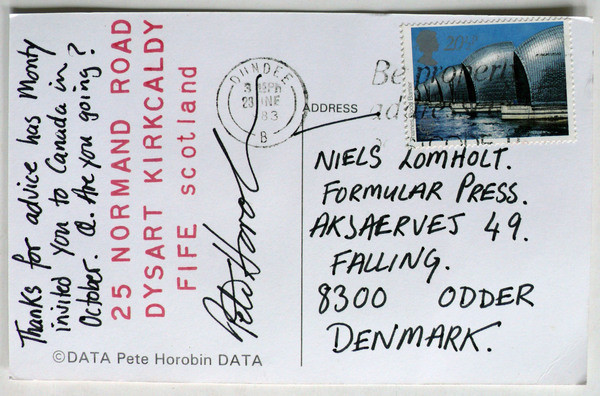 Thanks for advice has Monty
invited you to Canada in
October. Q. Are you going?
25 NORMAND ROAD
DYSART KIRKCALDY
FIFE scotland
Pete Horobin
©DATA Pete Horobin DATA
DUNDEE
83
B
20½P
Be properly
ADDRESS
NIELS LOMHOLT.
FORMULAR PRESS.
AKJAERVEJ 49.
FALLING.
8300 ODDER
DENMARK.